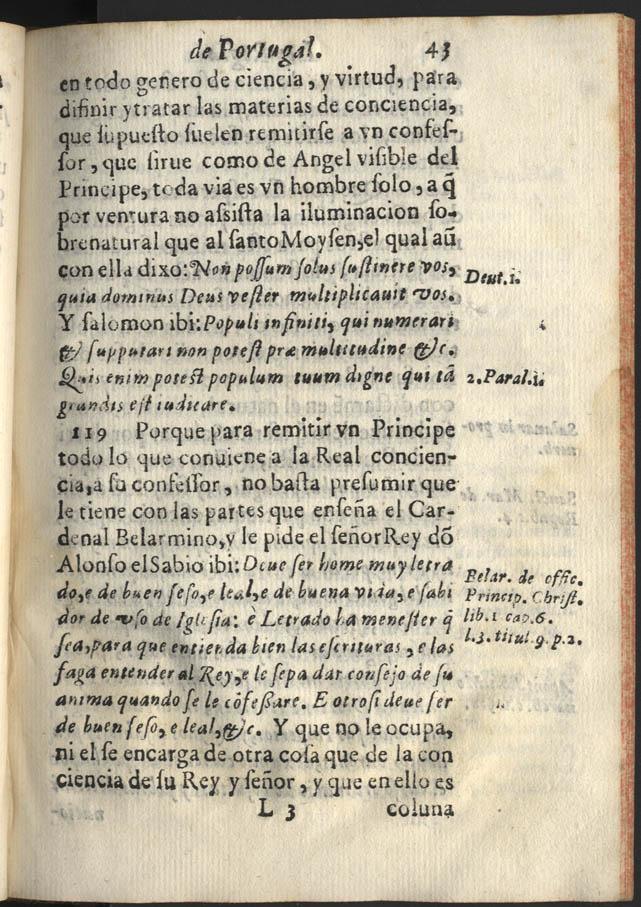 de Portugal. 43
en todo genero de ciencia, y virtud, para
difinir y tratar las materias de conciencia,
que supuesto suelen remitirse a vn confes-
sor, que sirue como de Angel visible del
Principe, toda via es vn hombre solo, a q̃
por ventura no assista la iluminacion so-
brenatural que al santo Moysen, el qual aũ
con ella dixo: Non possum solus sustinere vos,
Deut. 1.
quia dominus Deus vester multiplicauit vos.
Y salomon ibi: Populi infiniti, qui numerari
& supputari non potest præ multitudine &c.
Quis enim potest populum tuum digne qui tã
2. Paral. 1.
grandis est iudicare.
119 Porque para remitir vn Principe
todo lo que conuiene a la Real concien-
cia, a su confessor, no basta presumir que
le tiene con las partes que enseña el Car-
denal Belarmino, y le pide el señor Rey dõ
Alonso el Sabio ibi: Deue ser home muy letra
Belar. de offic.
do, e de buen seso, e leal, e de buena vida, e sabi
Princip. Christ.
dor de vso de Iglesia: è Letrado ha menester q̃
lib. 1 cap. 6.
sea, para que entienda bien las escrituras, e las
l. 3. titul. 9. p. 2.
faga entender al Rey, e le sepa dar consejo de su
anima quando se le cõfessare. E otrosi deue ser
de buen seso, e leal, &c. Y que no le ocupa,
ni el se encarga de otra cosa que de la con
ciencia de su Rey y señor, y que en ello es
L 3 coluna